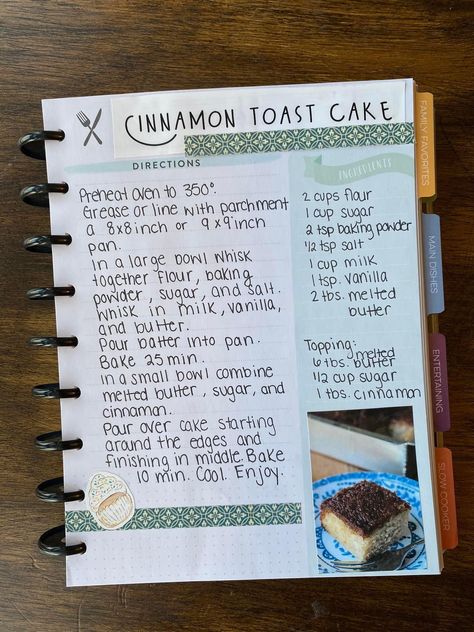 CINNAMON TOAST CAKE
DIRECTIONS
Preheat oven to 350°.
Grease or line with parchment
a 8x8 inch or 9x9 inch
pan.
In a large bowl whisk
together flour, baking
powder, sugar, and salt.
Whisk in milk, vanilla,
and butter.
Pour batter into pan.
Bake 25 min.
In a small bowl combine
melted butter, sugar, and
cinnaman.
Pour over cake starting
around the edges and
finishing in middle. Bake
10 min. Cool. Enjoy.
INGREDIENTS
2 cups flour
1 cup sugar
2 tsp baking powder
1/2 tsp salt
1 cup milk
1 tsp. vanilla
2 tbs. melted
butter
Topping:
melted
6 tbs. butter
1/2 cup sugar
1 tbs. cinnamon
FAMILY FAVORITES
MAIN DISHES
ENTERTAINING
SLOW COOKER